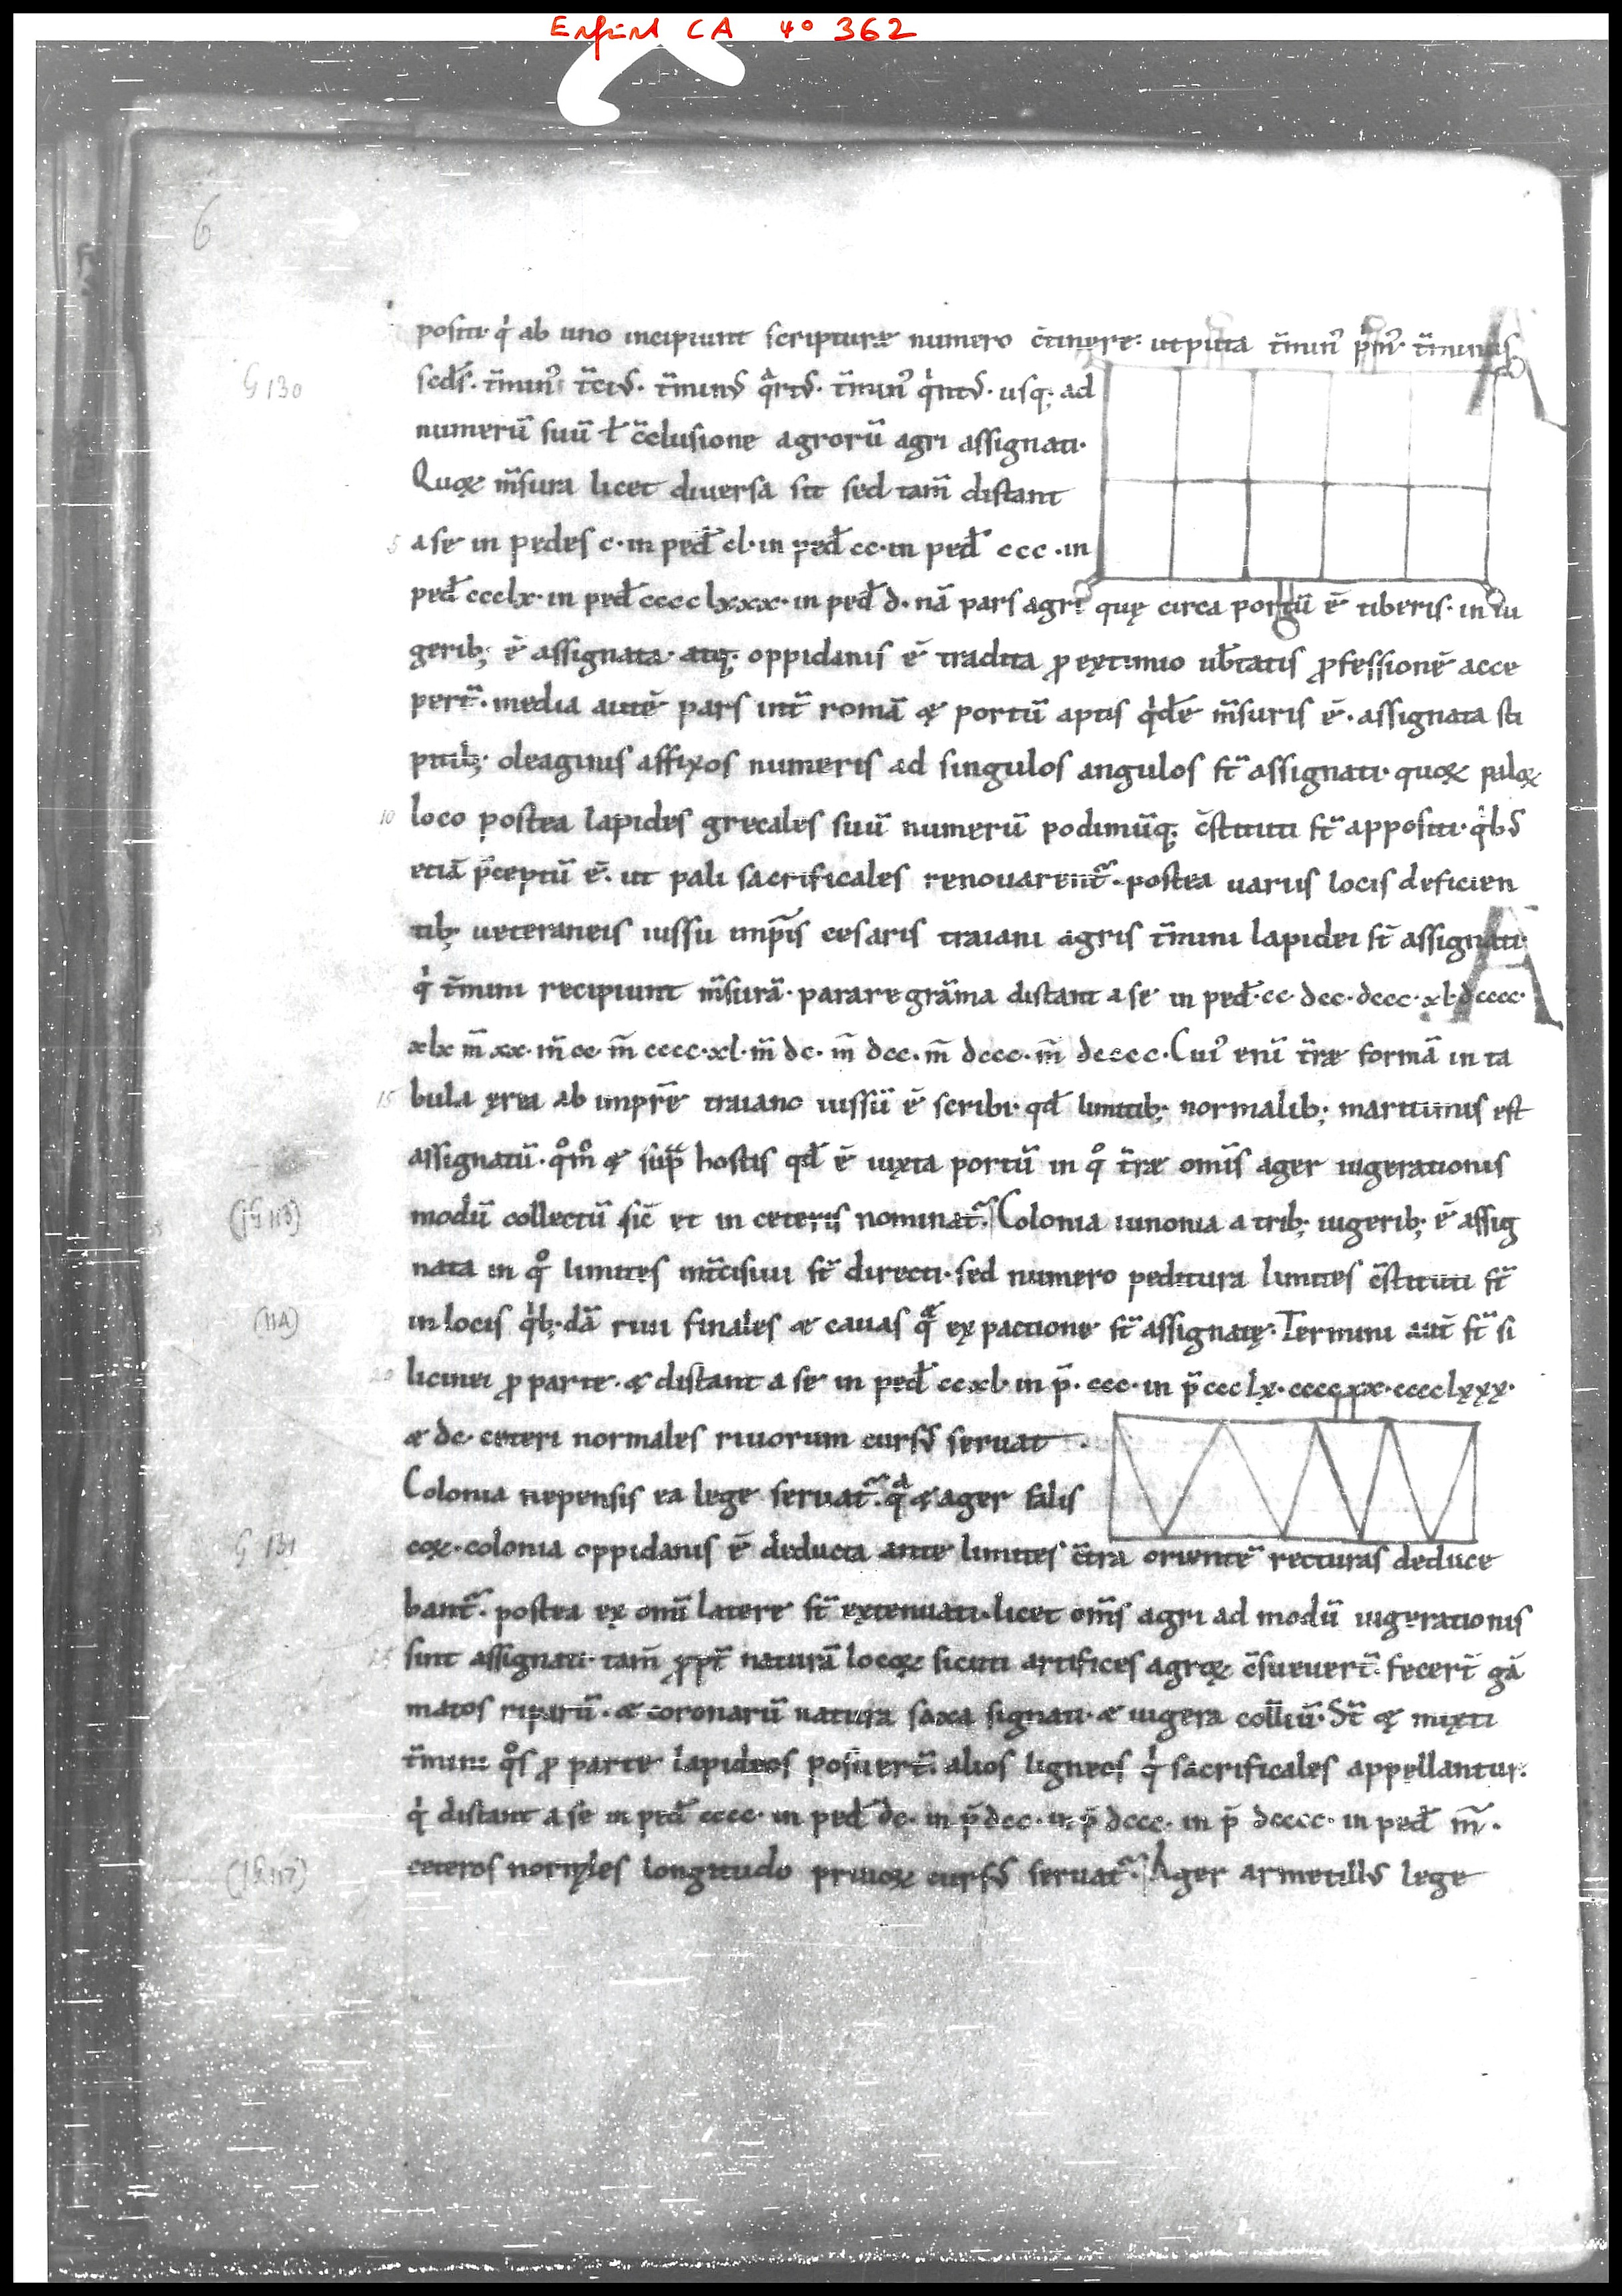 Erfurt CA 4° 362
6
positi· qͥ ab uno incipiunt scripturæ numero c̄tinere: utputa t̄minꝰ p̄mꝰ t̄minus
G 130
scdˢ· t̄minꝰ t̄ciꝰ· t̄minꝰ qᷓrtꝰ· t̄minꝰ qͥntꝰ· usq; ad
numerū suū ł c̄clusione agrorū agri assignati·
Quoꝝ m̄sura licet diuersa sit sed tam̄ distant
5 a se in pedes c· in ped̄ cl· in ped̄ cc· in ped̄ ccc· in
ped̄ ccclx· in ped̄ cccclxxx· in ped̄ d· nā pars agri quę circa portū ē tiberis· in iu
gerib; ē assignata· atq; oppidanis ē tradita ꝓ extimio ub̄tatis ꝓfessionē acce
per̄t· media autē pars int̄ romā & portū aptis qͥdē m̄suris ē· assignata sti
pitib; oleaginis affixos numeris ad singulos angulos s̄t assignati· quoꝝ paloꝝ
10 loco postea lapides grecales suū numerū podimūq; c̄stituti s̄t appositi· qͥbꝰ
etiā p̄ceptū ē· ut pali sacrificales renouarent᷑· postea uariis locis deficien
tib; ueteraneis iussu imp̄is cesaris traiani agris t̄mini lapidei s̄t assignati·
qͥ t̄mini recipiunt m̄surā· parare grāma distant a se in ped̄· cc· dcc· dccc· xl· dcccc·
xlx m̄ xx· m̄ cc· m̄ cccc· xl· m̄ dc· m̄ dcc· m̄ dccc· m̄ dcccc· Cuiꝰ enī t̄ræ formā in ta
15 bula ęrea ab imp̄re traiano iussū ē scribi· qd̄ limitib; normalib; maritimis est
assignatū· qͦmͦ & sup̄ hostis qd̄ ē iuxta portū in qͦ t̄ræ om̄is ager iugerationis
(jG 113)
modū collectū sic̄ et in ceteris nominat᷑· Colonia iunonia a trib; iugerib; ē assig
nata in qͦ limites int̄cisiui s̄t directi· sed numero peditura limites c̄stituti s̄t
(11A)
in locis qͥb;dā riui finales & cauas qᷓ ex pactione s̄t assignatę· Termini aut̄ s̄t si
20 licinei ꝓ parte· & distant a se in ped̄ ccxl· in p̄· ccc· in p̄ ccclx· ccccxx· cccclxxx·
& dc· ceteri normales riuorum cursꝰ seruat
Colonia nepensis ea lege seruat᷑· qᷓ & ager falis
G 131
coꝝ· colonia oppidanis ē deducta ante limites c̄tra orientē recturas deduce
bant᷑· postea ex omī latere s̄t extenuati· licet om̄s agri ad modū iugerationis
25 sint assignati· tam̄ ꝓpt̄ naturā locoꝝ sicuti artifices agroꝝ c̄sueuer̄t· fecer̄t gā
matos riparū· & coronarū natura saxa signati· & iugera collium· S̄t & mixti
t̄mini qͦs ꝓ parte lapideos posuer̄t· alios ligneos qͥ sacrificales appellantur·
qͥ distant a se in ped̄ cccc· in ped̄ dc· in p̄ dcc· in p̄ dccc· in p̄ dcccc· in ped̄ m̄·
ceteros normales longitudo priuoꝝ cursꝰ seruat᷑· Ager armetillꝰ lege